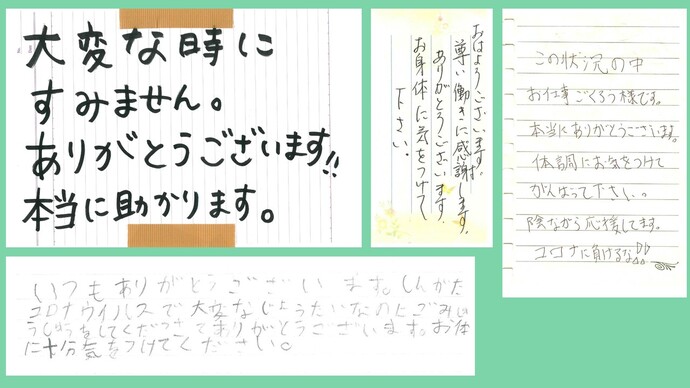 大変な時に
すみません。
ありがとうございます!!
本当に助かります。
おはようございます!!
尊い働きに感謝します。
ありがとうございます。
お身体に気をつけて
下さい。
この状況の中
お仕事ごくろう様です。
本当にありがとうございます。
体調にお気をつけて
がんばって下さい。
陰ながら応援してます。
コロナに負けるな!!
いつもありがとうございます。しんがた
コロナウイルスで大変なじょうたいなのにごみしゅ
うしゅうをしてくださってありがとうございます。お体
に十分気をつけてください。